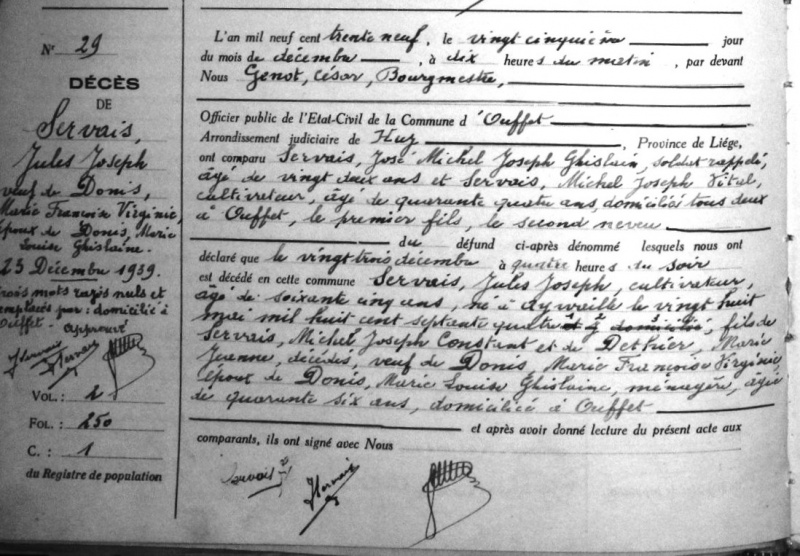 N° 29
DÉCÈS
DE
Servais,
Jules Joseph
veuf de Donis,
Marie Françoise Virginie,
époux de Donis, Marie
Louise Ghislaine.
23 Décembre 1939.
trois mots rayés nuls et
remplacés par : domicilié à
Ouffet. Approuvé
JServais
VOL. : 2
FOL. : 250
C. : 1
du Registre de population
L'an mil neuf cent trente neuf, le vingt cinquième jour
du mois de décembre, à dix heures du matin, par devant
Nous Genot, César, Bourgmestre,
Officier public de l'Etat-Civil de la Commune d'Ouffet
Arrondissement judiciaire de Huy, Province de Liége,
ont comparu Servais, José Michel Joseph Ghislain, soldat rappelé,
âgé de vingt deux ans et Servais, Michel Joseph Vital,
cultivateur, âgé de quarante quatre ans, domiciliés tous deux
à Ouffet, le premier fils, le second neveu
du défund ci-après dénommé lesquels nous ont
déclaré que le vingt trois décembre à quatre heures du soir
est décédé en cette commune Servais, Jules Joseph, cultivateur,
âgé de soixante cinq ans, né à Aywaille le vingt huit
mai mil huit cent septante quatre et y domicilié, fils de
Servais, Michel Joseph Constant et de Dethier, Marie
Jeanne, décédés, veuf de Donis, Marie Françoise Virginie,
époux de Donis, Marie Louise Ghislaine, ménagère, âgée
de quarante six ans, domiciliée à Ouffet
et après avoir donné lecture du présent acte aux
comparants, ils ont signé avec Nous
Servais JServais